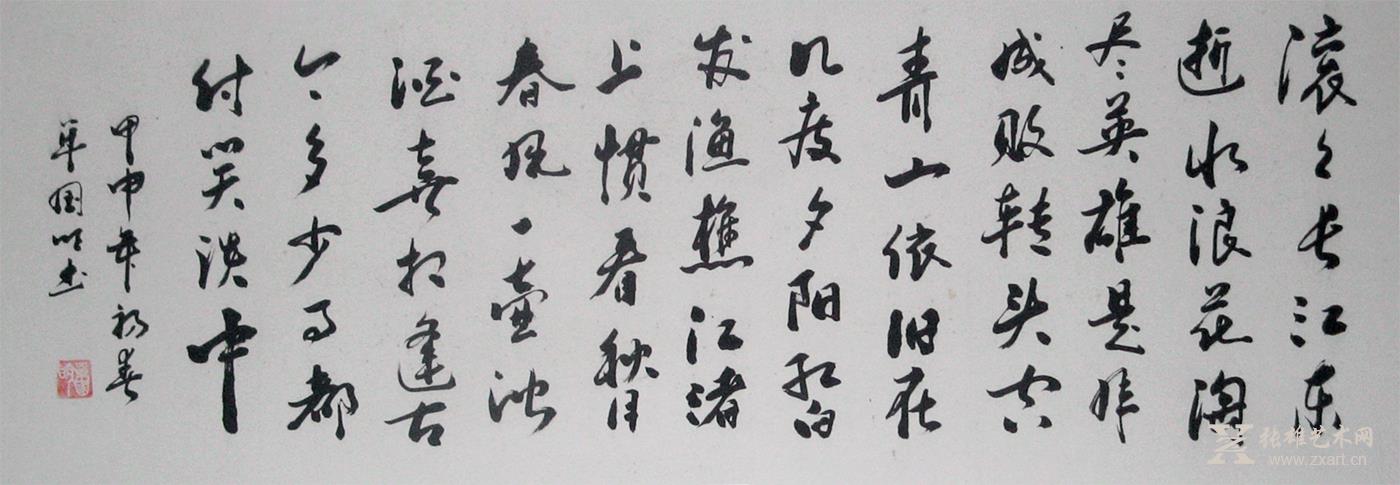 滚々长江东
逝水浪花淘
尽英雄是非
成败转头空
青山依旧在
几度夕阳红白
发渔樵江渚
上惯看秋月
春风一壶浊
酒喜相逢古
今多少事都
付笑谈中
甲申年初春
单国明书
张雄艺术网
www.zxart.cn